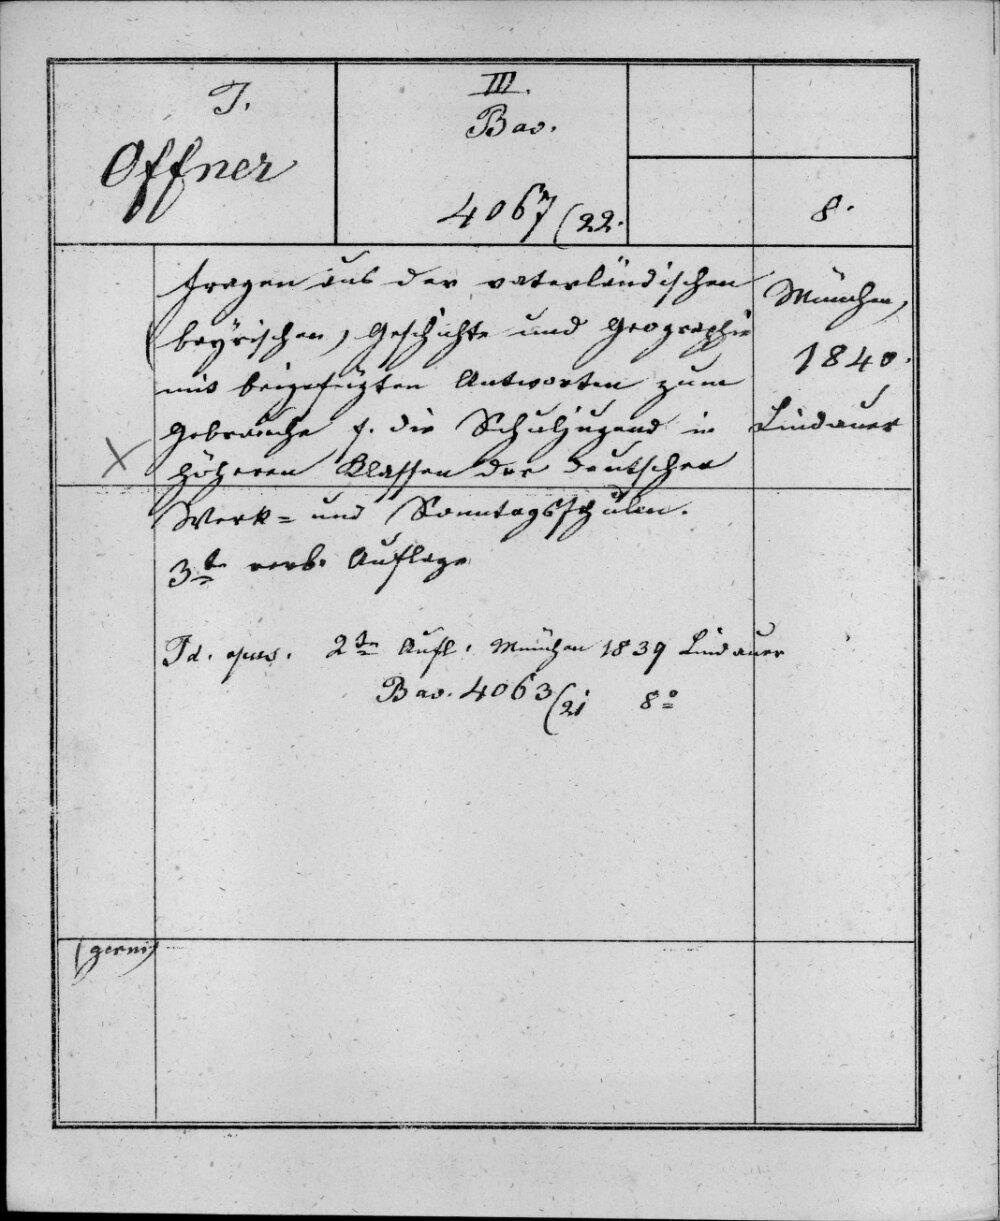 J.
Offner
III.
Bav.
4067 (22.
8.
Fragen aus der vaterländischen
(bayrischen) Geschichte und Geographie
mit beigefügten Antworten zum
Gebrauche f. die Schuljugend in
höheren Klassen der deutschen
Werk= und Sonntagsschulen.
3te verb. Auflage
München,
1840.
Lindauer
X
Id. opus. 2te Aufl. München 1839 Lindauer
Bav. 4063 (21 8o